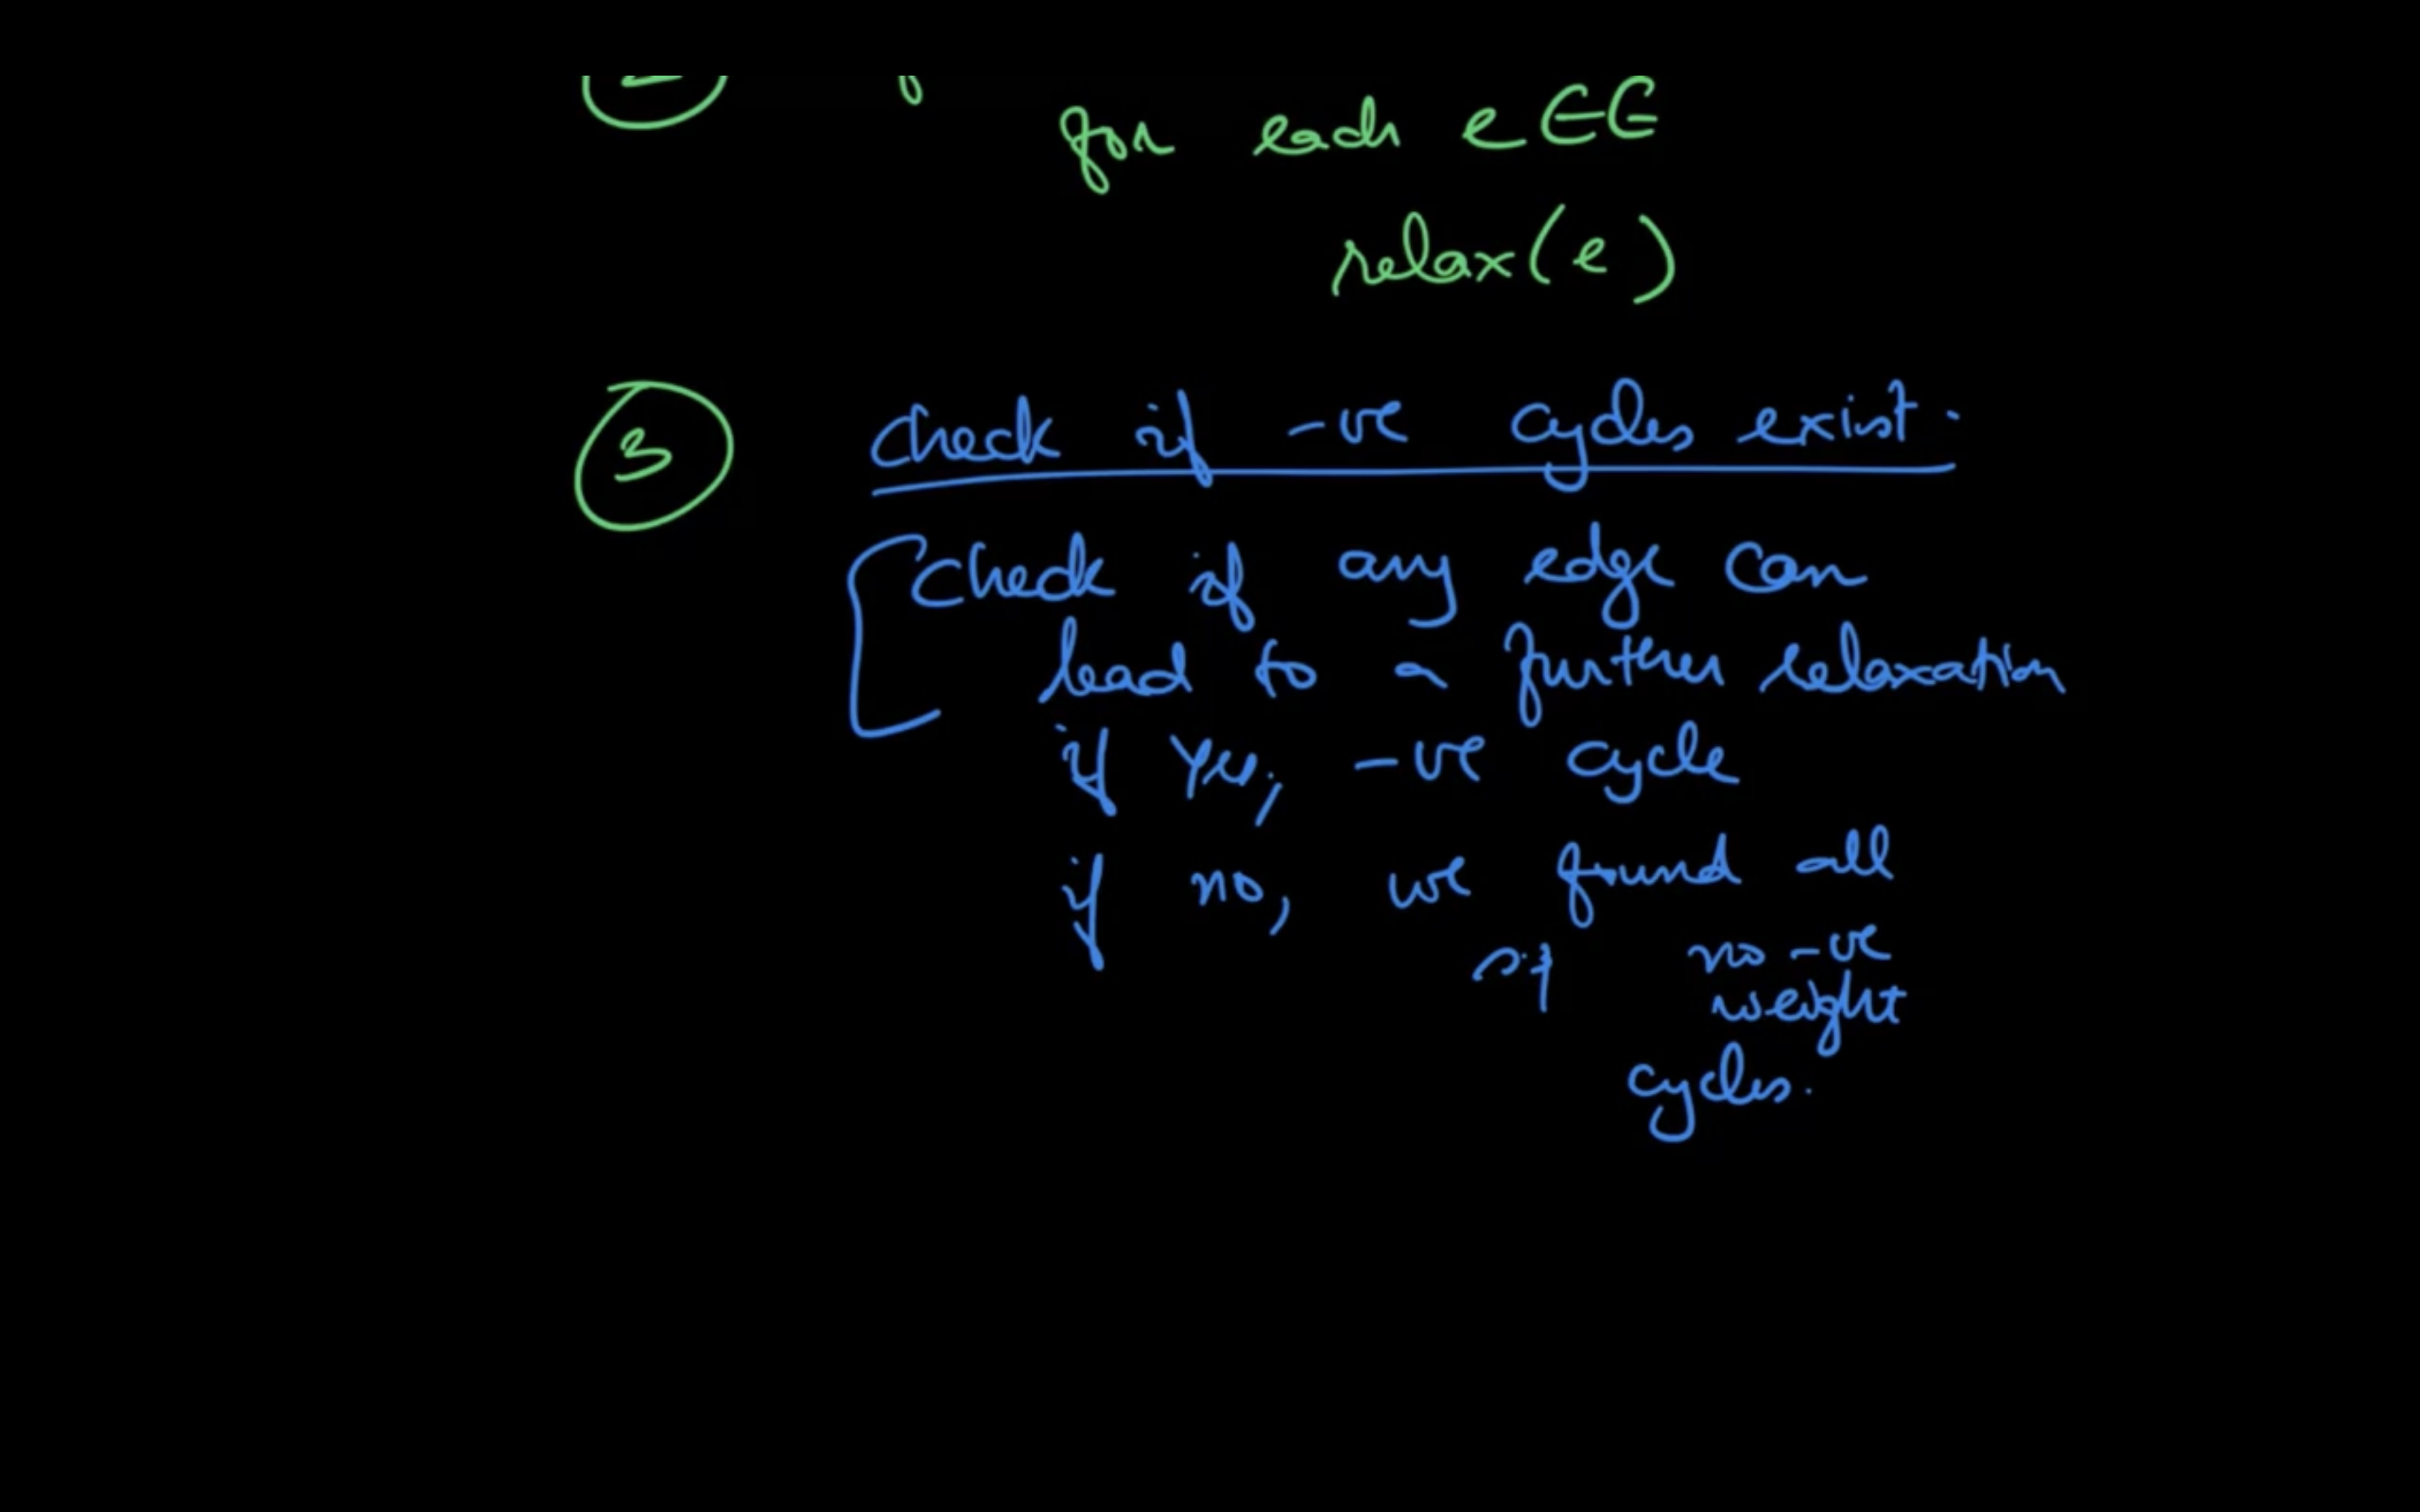 for each e ∈ E
relax(e)
3 check if -ve cycles exist.
check if any edge can
lead to a further relaxation
if yes, -ve cycle
if no, we found all
no -ve
weight
cycles.